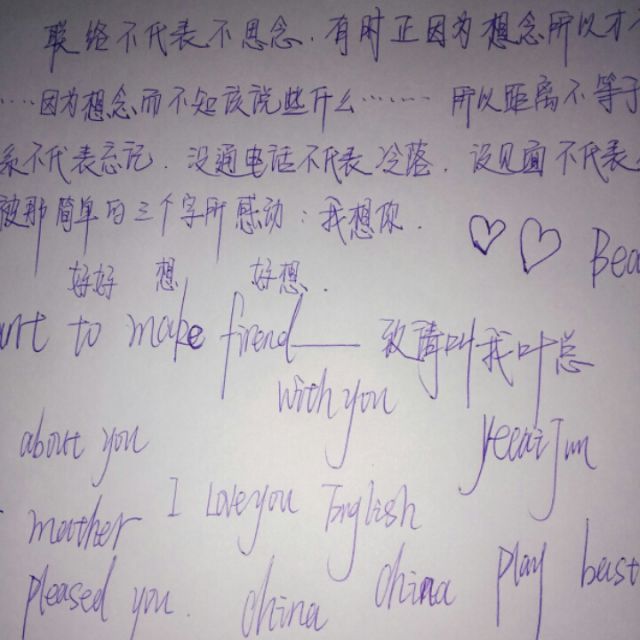 联络不代表不思念.有时正因为想念所以才不
……因为想念而不知该说些什么……… 所以距离不等于
系不代表忘记.没通电话不代表冷落.没见面不代表
被那简单的三个字所感动:我想你. ♡♡ Bea
好好 想 好想.
to make firend 致请叫我叶总
with you
about you Jun
mother I Love you English
pleased you. china china play bast